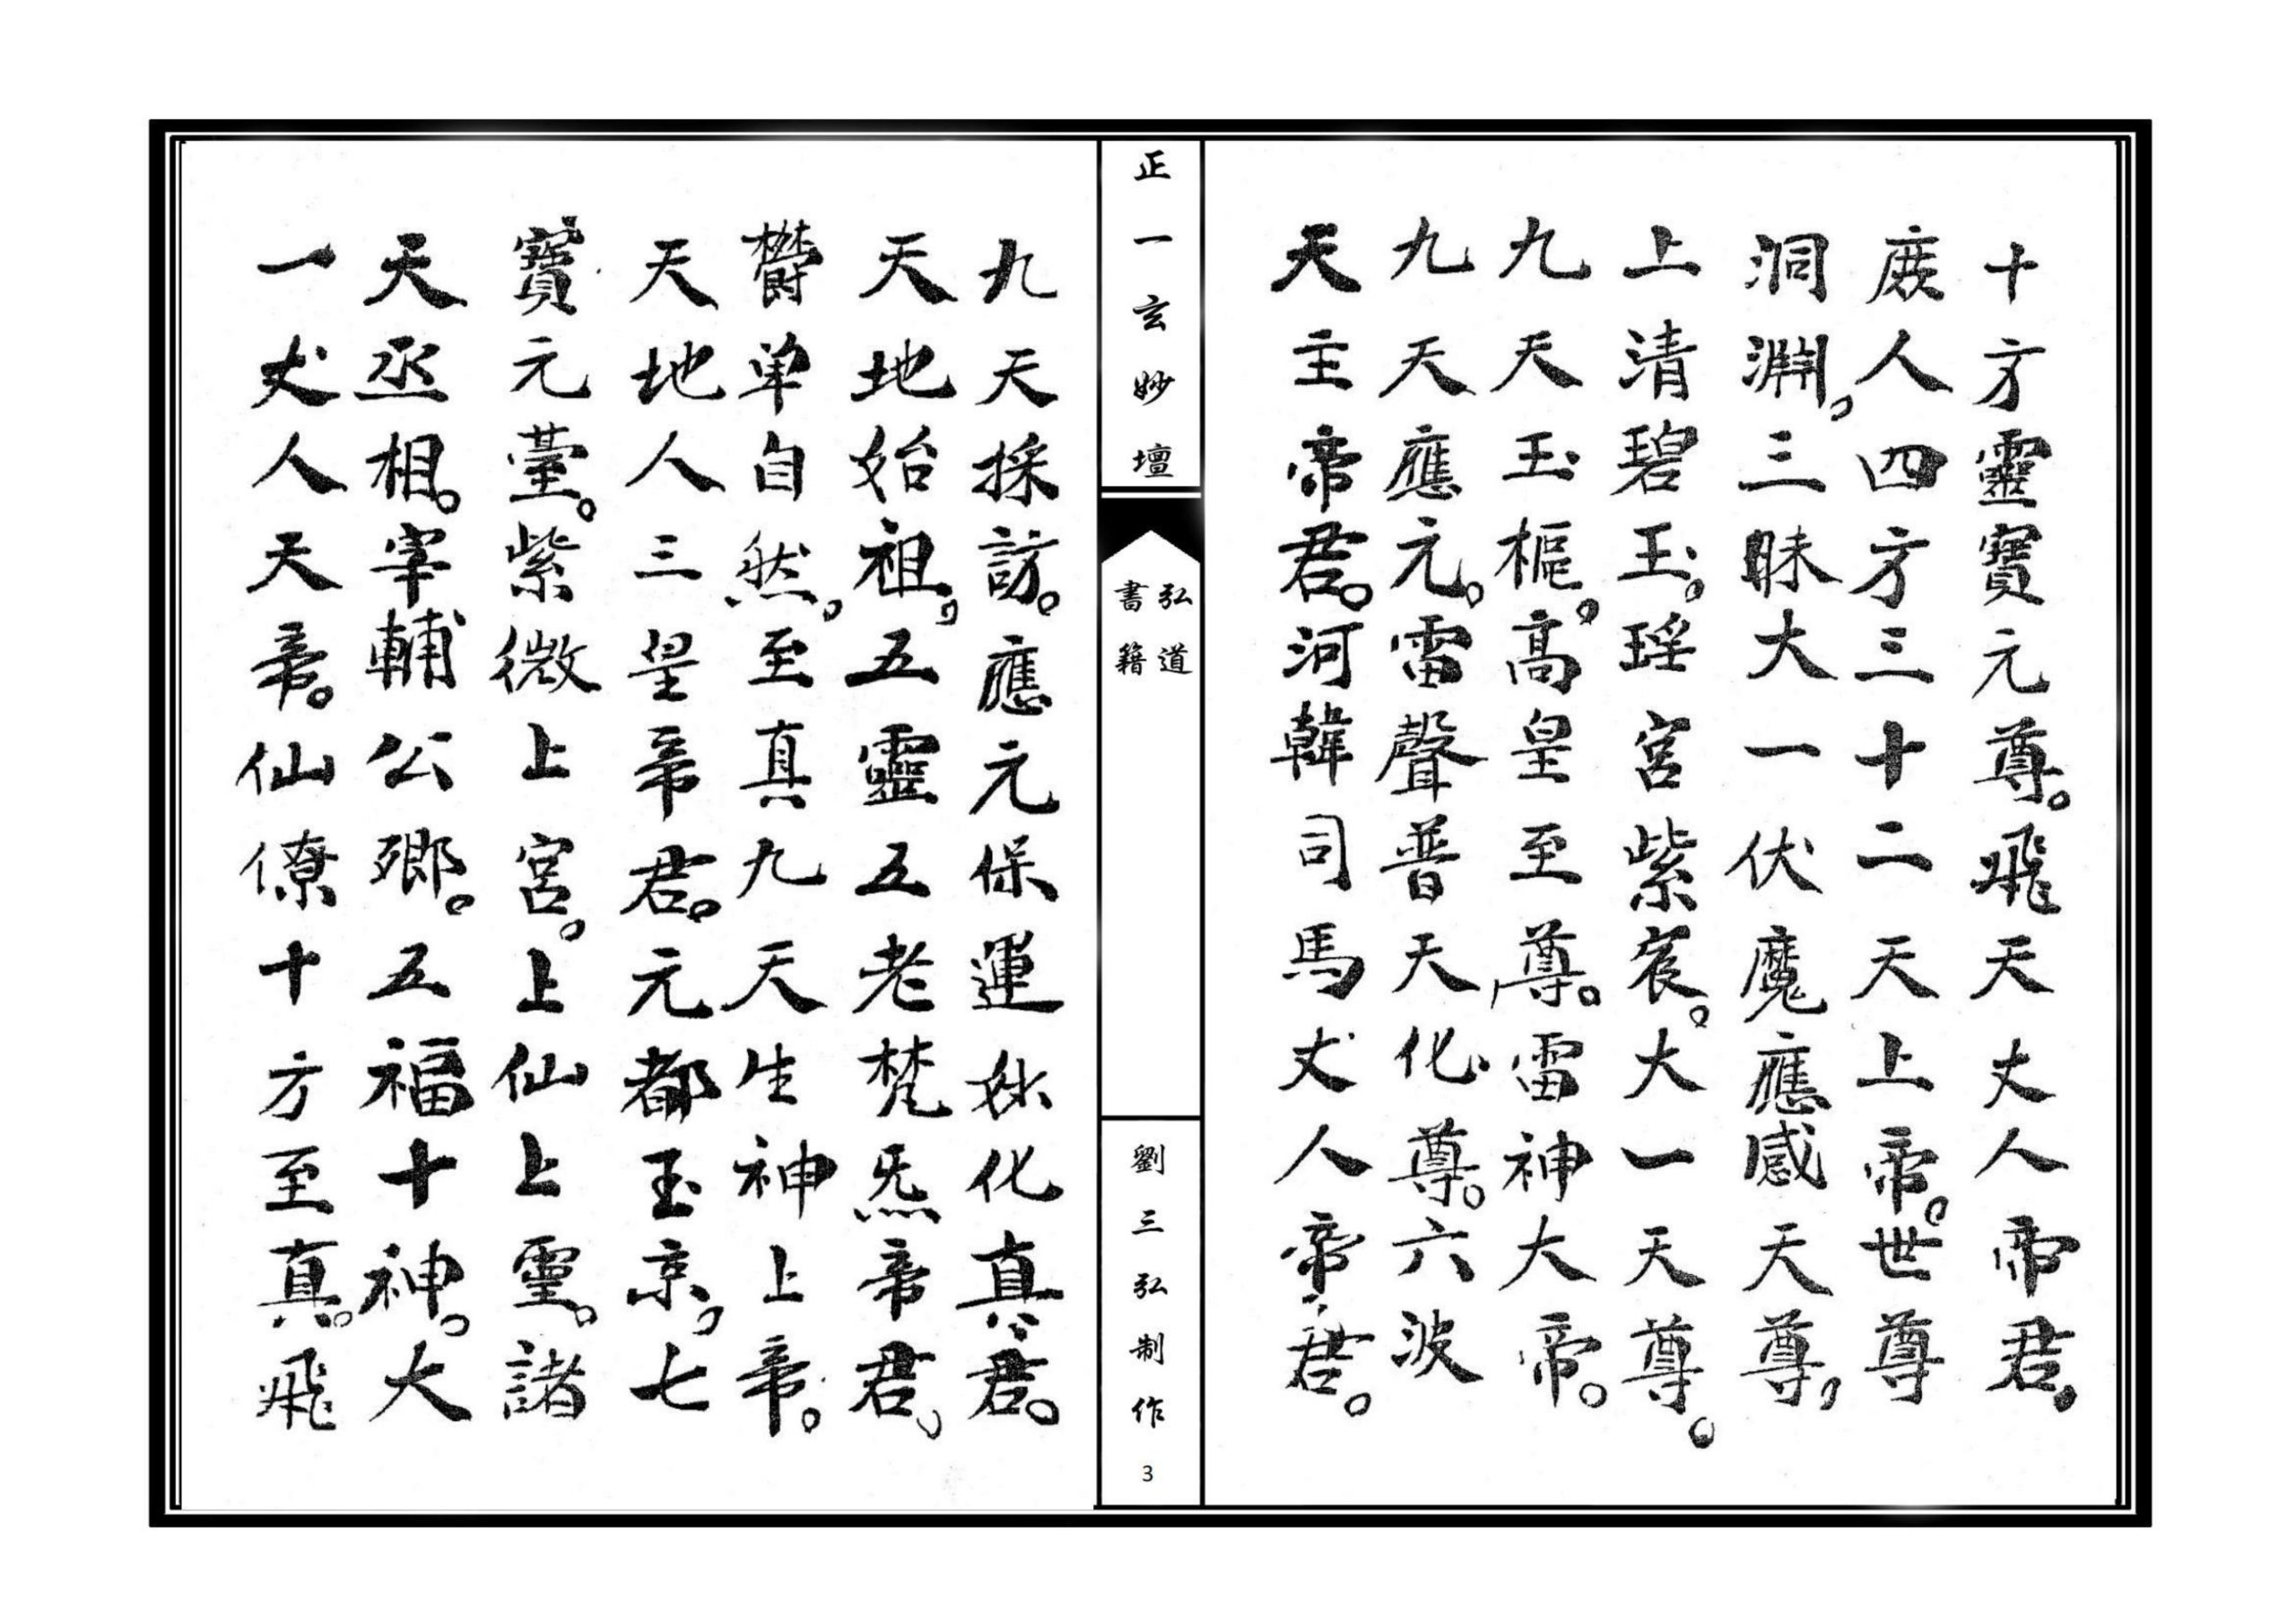 十方靈寶元尊。飛天大人帝君。
度人四方三十二天上帝。世尊
洞淵。三昧大一伏魔應感天尊。
上清碧玉。瑶宮紫宸。大一天尊。
九天玉樞。高皇至尊。雷神大帝。
九天應元。雷聲普天化尊。六波
天主帝君。河韓司馬丈人帝君。
正一玄妙壇
弘道
書籍
劉三弘制作
3
九天採訪。應元保運妙化真君。
天地始祖。五靈五老梵炁帝君。
欝单自然。至真九天生神上帝。
天地人三皇帝君。元都玉京。七
寶元臺。紫微上宮。上仙上靈。諸
天丞相。宰輔公卿。五福十神。大
一丈人天帝。仙僚十方至真。飛